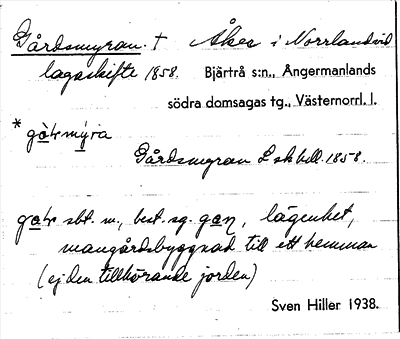 Gårdsmyran. † Åker i Norrland vid
lagaskifte 1858. Bjärtrå s:n., Ångermanlands
södra domsagas tg., Västernorrl. l.
* gɑ̀ɽsmýra
Gårdsmyran L sk bill. 1858.
gɑɽ sbt. m., best. sg. gɑɳ, lägenhet,
mangårdsbyggnad till ett hemman
(ej den tillhörande jorden)
Sven Hiller 1938.